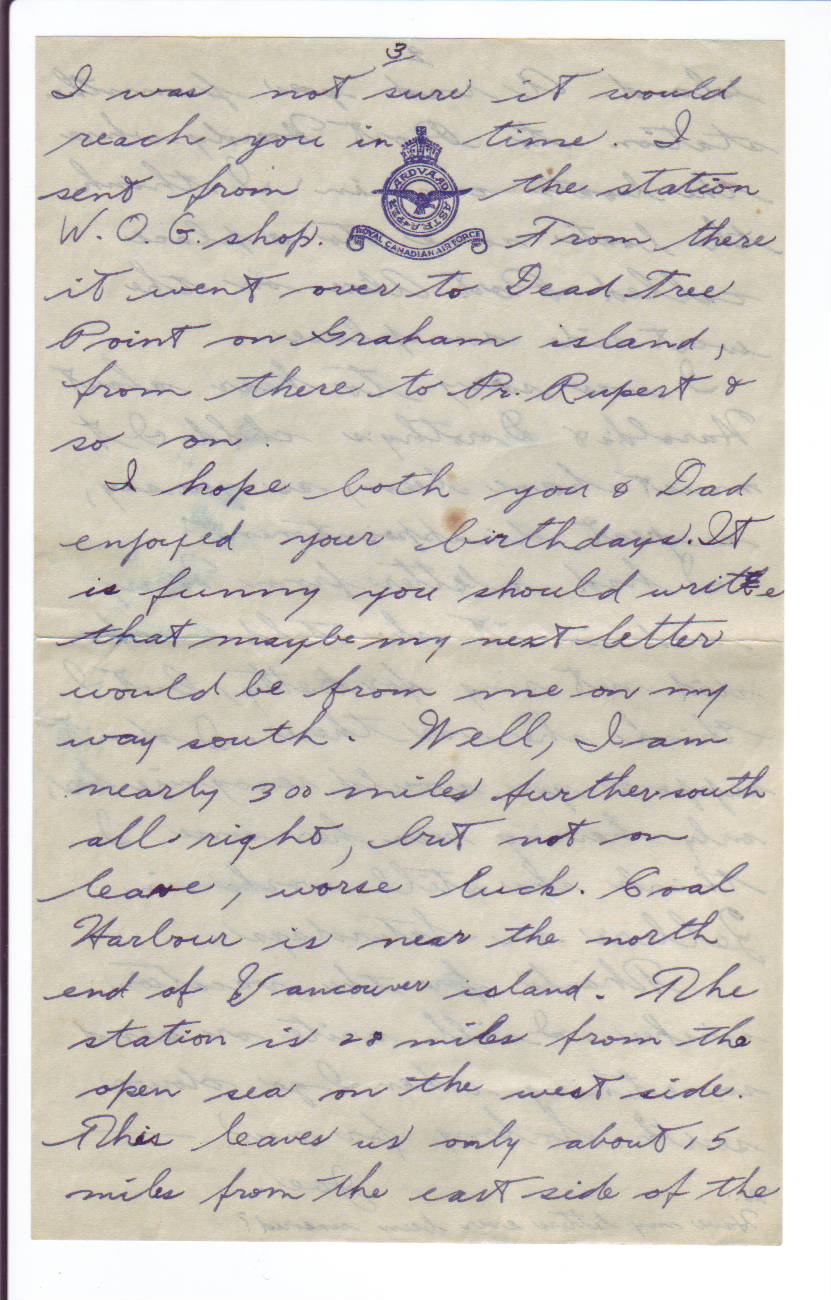 3
I was not sure it would
reach you in time. I
sent from the station
W. O. G. shop. From there
PER ARDVA AD ASTRA
ROYAL CANADIAN AIR FORCE
it went over to Dead Tree
Point on Graham island,
from there to Pr. Rupert &
so on.
I hope both you & Dad
enjoyed your birthdays. It
is funny you should write
that maybe my next letter
would be from me on my
way south. Well, I am
nearly 300 miles further south
all right, but not on
leave, worse luck. Coal
Harbour is near the north
end of Vancouver island. The
station is 28 miles from the
open sea on the west side.
This leaves us only about 15
miles from the east side of the